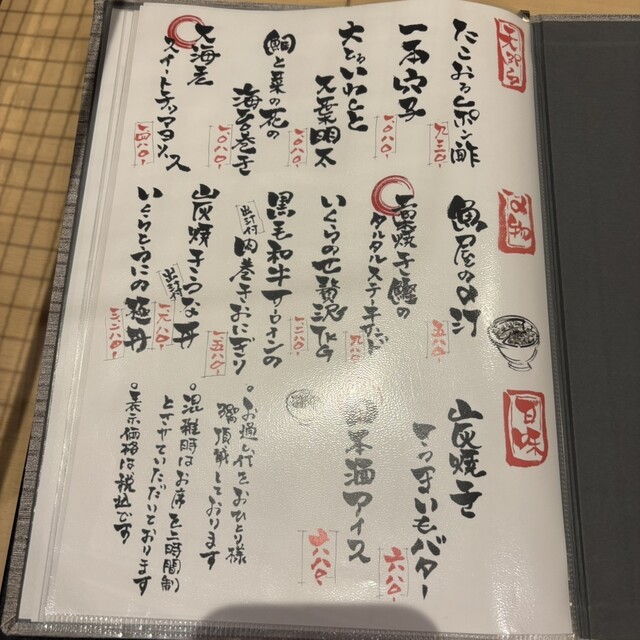 天ぷら
たこおろしポン酢
九三〇-
一本穴子
一〇八〇-
大とろいわしと
大葉明太
一〇八〇-
鯛と菜の花の
海苔巻き
一〇八〇-
大海老
スイートチリマヨソース
一四八〇-
〆物
魚屋のめ汁
五八〇-
藁焼き鰹の
タルタルステーキサンド
いくらの贅沢TKG
黒毛和牛サーロインの
肉巻きおにぎり
出汁付
一五八〇-
炭焼きうな丼
出汁付
いくらとうにの極丼
三二八〇-
甘味
炭焼き
さつまいもバター
六八〇-
日本酒アイス
六八〇-
○お通し代をおひとり様
頂戴しております
○混雑時はお席を二時間制
とさせていただいております
○表示価格は税込です